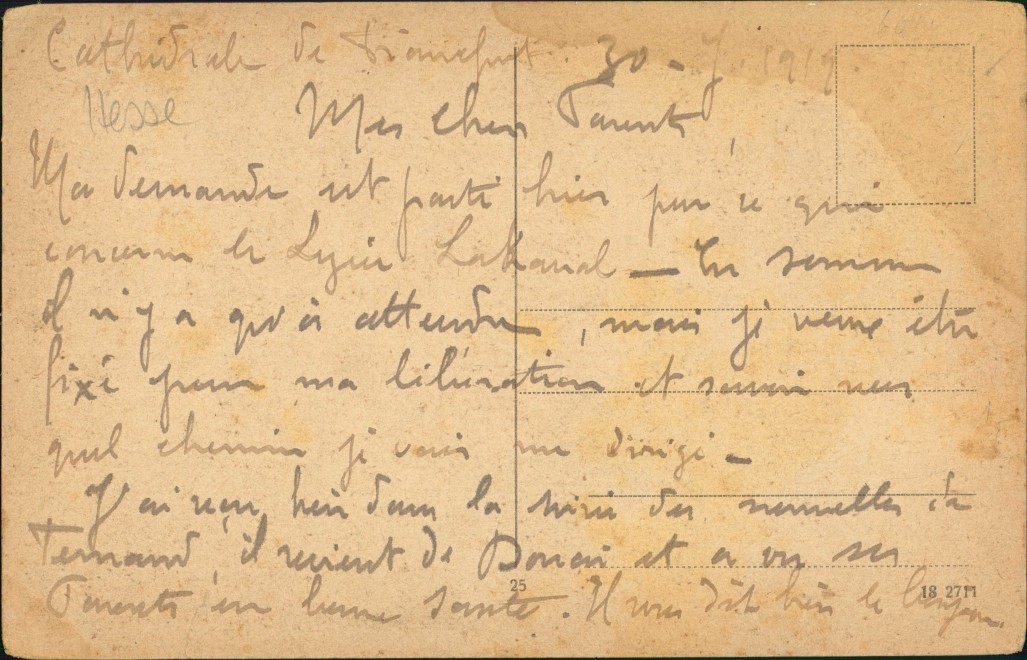 Cathédrale de Francfort. 30 - 7. 1919.
Hesse
Mes chers Parents,
Ma demande est parti hier pour ce qui
concerne le Lycée Lakanal — En somme
il n'y a qu'à attendre, mais je veux être
fixé pour ma libération et savoir vers
quel chemin je vais me dirigé -
J'ai reçu hier dans la soirée des nouvelles de
Fernand, il revient de Douai et a vu ses
Parents en bonne santé. Il vous dit bien le bonjour.
25
18 2711